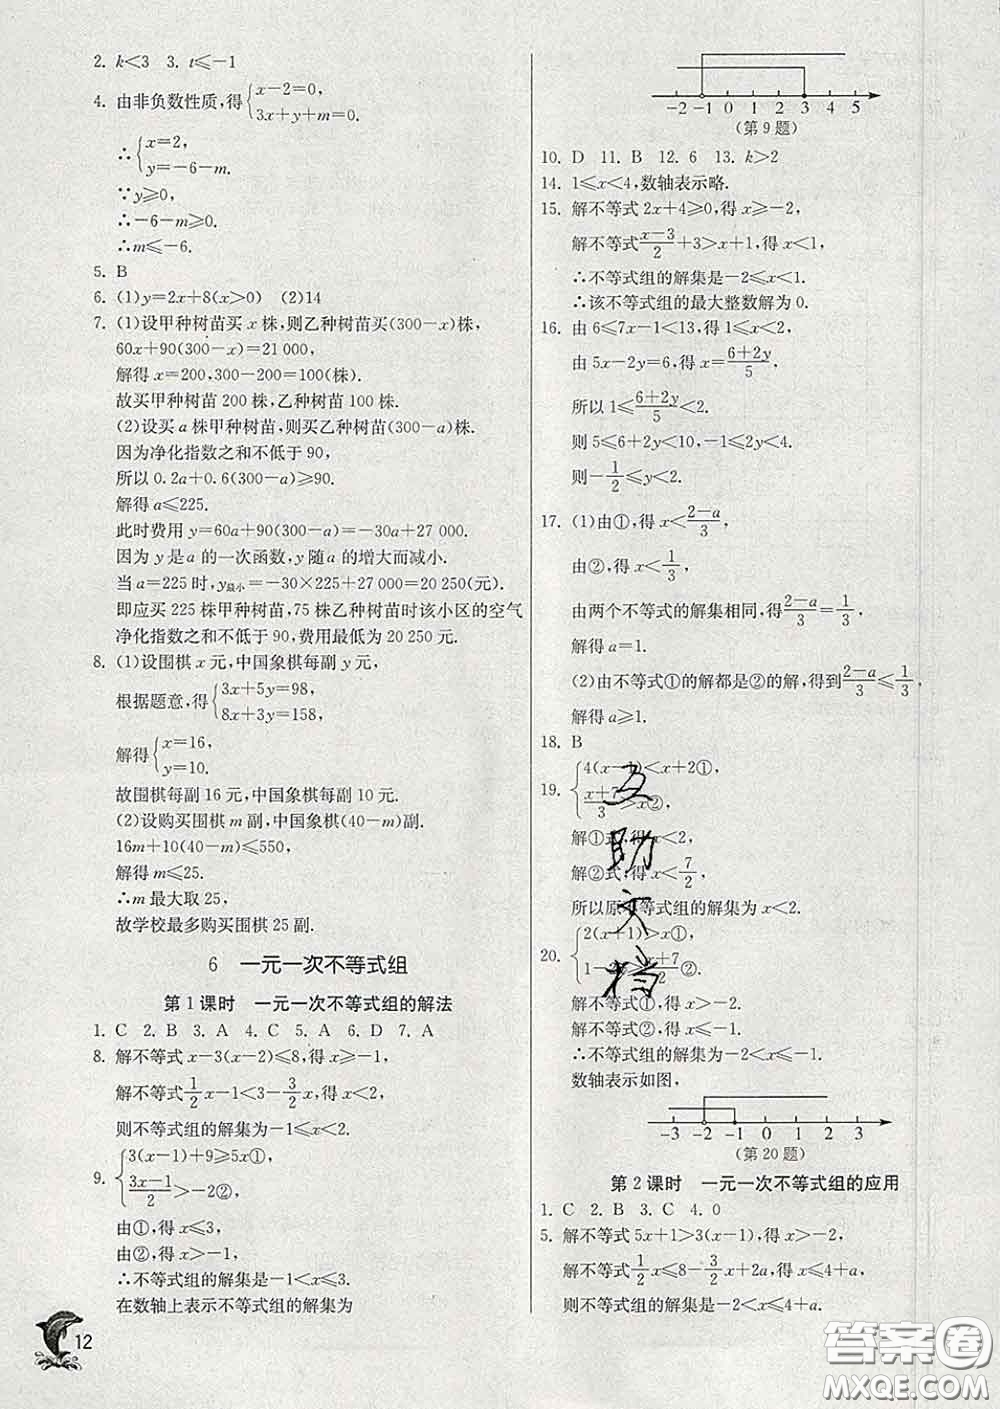 2. k<3　3. t≤-1
4. 由非负数性质,得{x-2=0,
3x+y+m=0.
∴{x=2,
y=-6-m.
∵y≥0,
∴-6-m≥0.
∴m≤-6.
5. B
6. (1)y=2x+8(x>0)　(2)14
7. (1)设甲种树苗买 x 株,则乙种树苗买(300-x)株,
60x+90(300-x)=21 000,
解得 x=200,300-200=100(株).
故买甲种树苗 200 株,乙种树苗 100 株.
(2)设买 a 株甲种树苗,则买乙种树苗(300-a)株.
因为净化指数之和不低于 90,
所以 0.2a+0.6(300-a)≥90.
解得 a≤225.
此时费用 y=60a+90(300-a)=-30a+27 000.
因为 y 是 a 的一次函数,y 随 a 的增大而减小.
当 a=225 时,y最小=-30×225+27 000=20 250(元).
即应买 225 株甲种树苗,75 株乙种树苗时该小区的空气
净化指数之和不低于 90,费用最低为 20 250 元.
8. (1)设围棋 x 元,中国象棋每副 y 元,
根据题意,得{3x+5y=98,
8x+3y=158,
解得{x=16,
y=10.
故围棋每副 16 元,中国象棋每副 10 元.
(2)设购买围棋 m 副,中国象棋(40-m)副.
16m+10(40-m)≤550,
解得 m≤25.
∴m 最大取 25,
故学校最多购买围棋 25 副.
6　一元一次不等式组
第 1 课时　一元一次不等式组的解法
1. C　2. B　3. A　4. C　5. A　6. D　7. A
8. 解不等式 x-3(x-2)≤8,得 x≥-1,
解不等式 1/2 x-1<3-3/2 x,得 x<2,
则不等式组的解集为-1≤x<2.
9. {3(x-1)+9≥5x①,
(3x-1)/2>-2②,
由①,得 x≤3,
由②,得 x>-1,
∴不等式组的解集是-1<x≤3.
在数轴上表示不等式组的解集为
12
-2 -1 0 1 2 3 4 5
(第 9 题)
10. D　11. B　12. 6　13. k>2
14. 1≤x<4,数轴表示略.
15. 解不等式 2x+4≥0,得 x≥-2,
解不等式 (x-3)/2+3>x+1,得 x<1,
∴不等式组的解集是-2≤x<1.
∴该不等式组的最大整数解为 0.
16. 由 6≤7x-1<13,得 1≤x<2,
由 5x-2y=6,得 x=(6+2y)/5,
所以 1≤(6+2y)/5<2.
则 5≤6+2y<10,-1≤2y<4.
则-1/2≤y<2.
17. (1)由①,得 x<(2-a)/3,
由②,得 x<1/3,
由两个不等式的解集相同,得(2-a)/3=1/3,
解得 a=1.
(2)由不等式①的解都是②的解,得到(2-a)/3≤1/3,
解得 a≥1.
18. B
19. {4(x-1)<x+2①,
(x+7)/3>x②,
解①式,得 x<2,
解②式,得 x<7/2,
所以原不等式组的解集为 x<2.
20. {2(x+1)>x①,
1-2x≥(x+7)/2②.
解不等式①,得 x>-2,
解不等式②,得 x≤-1,
∴不等式组的解集为-2<x≤-1.
数轴表示如图,
-3 -2 -1 0 1 2 3
(第 20 题)
第 2 课时　一元一次不等式组的应用
1. C　2. B　3. C　4. 0
5. 解不等式 5x+1>3(x-1),得 x>-2,
解不等式 1/2 x≤8-3/2 x+2a,得 x≤4+a,
则不等式组的解集是-2<x≤4+a.
互助文档
答案圈
MXQE.COM